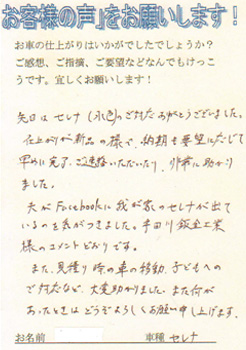 お客様の声」をお願いします!
お車の仕上がりはいかがでしたでしょうか?
ご感想、ご指摘、ご要望などなんでもけっこ
うです。宜しくお願いします!
先日は セレナ (水色)の ありがとうございました。
仕上がりが新品の様で、納期も要望に応じて
早めに完了、ご連絡いただいたり、非常に助かり
ました。
夫がFacebookに我が家のセレナが出て
いるのを気がつきました。半田川鈑金工業
様のコメントどおりです。
また、見積り時の車の移動、子どもへの
ご対応など、大変助かりました。また何か
あったときはどうぞよろしくお願い申し上げます。
お名前
車種 セレナ